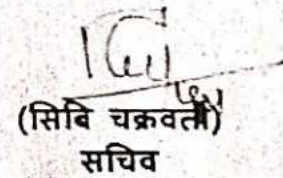 (सिबि चक्रवर्ती)
सचिव